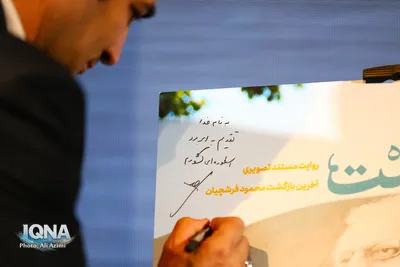 به نام خدا
تقدیم به
اسطوره‌ای
روایت مستند تصویری
آخرین بازگشت محمود فرشچیان
IQNA
Photo: Ali Azimi